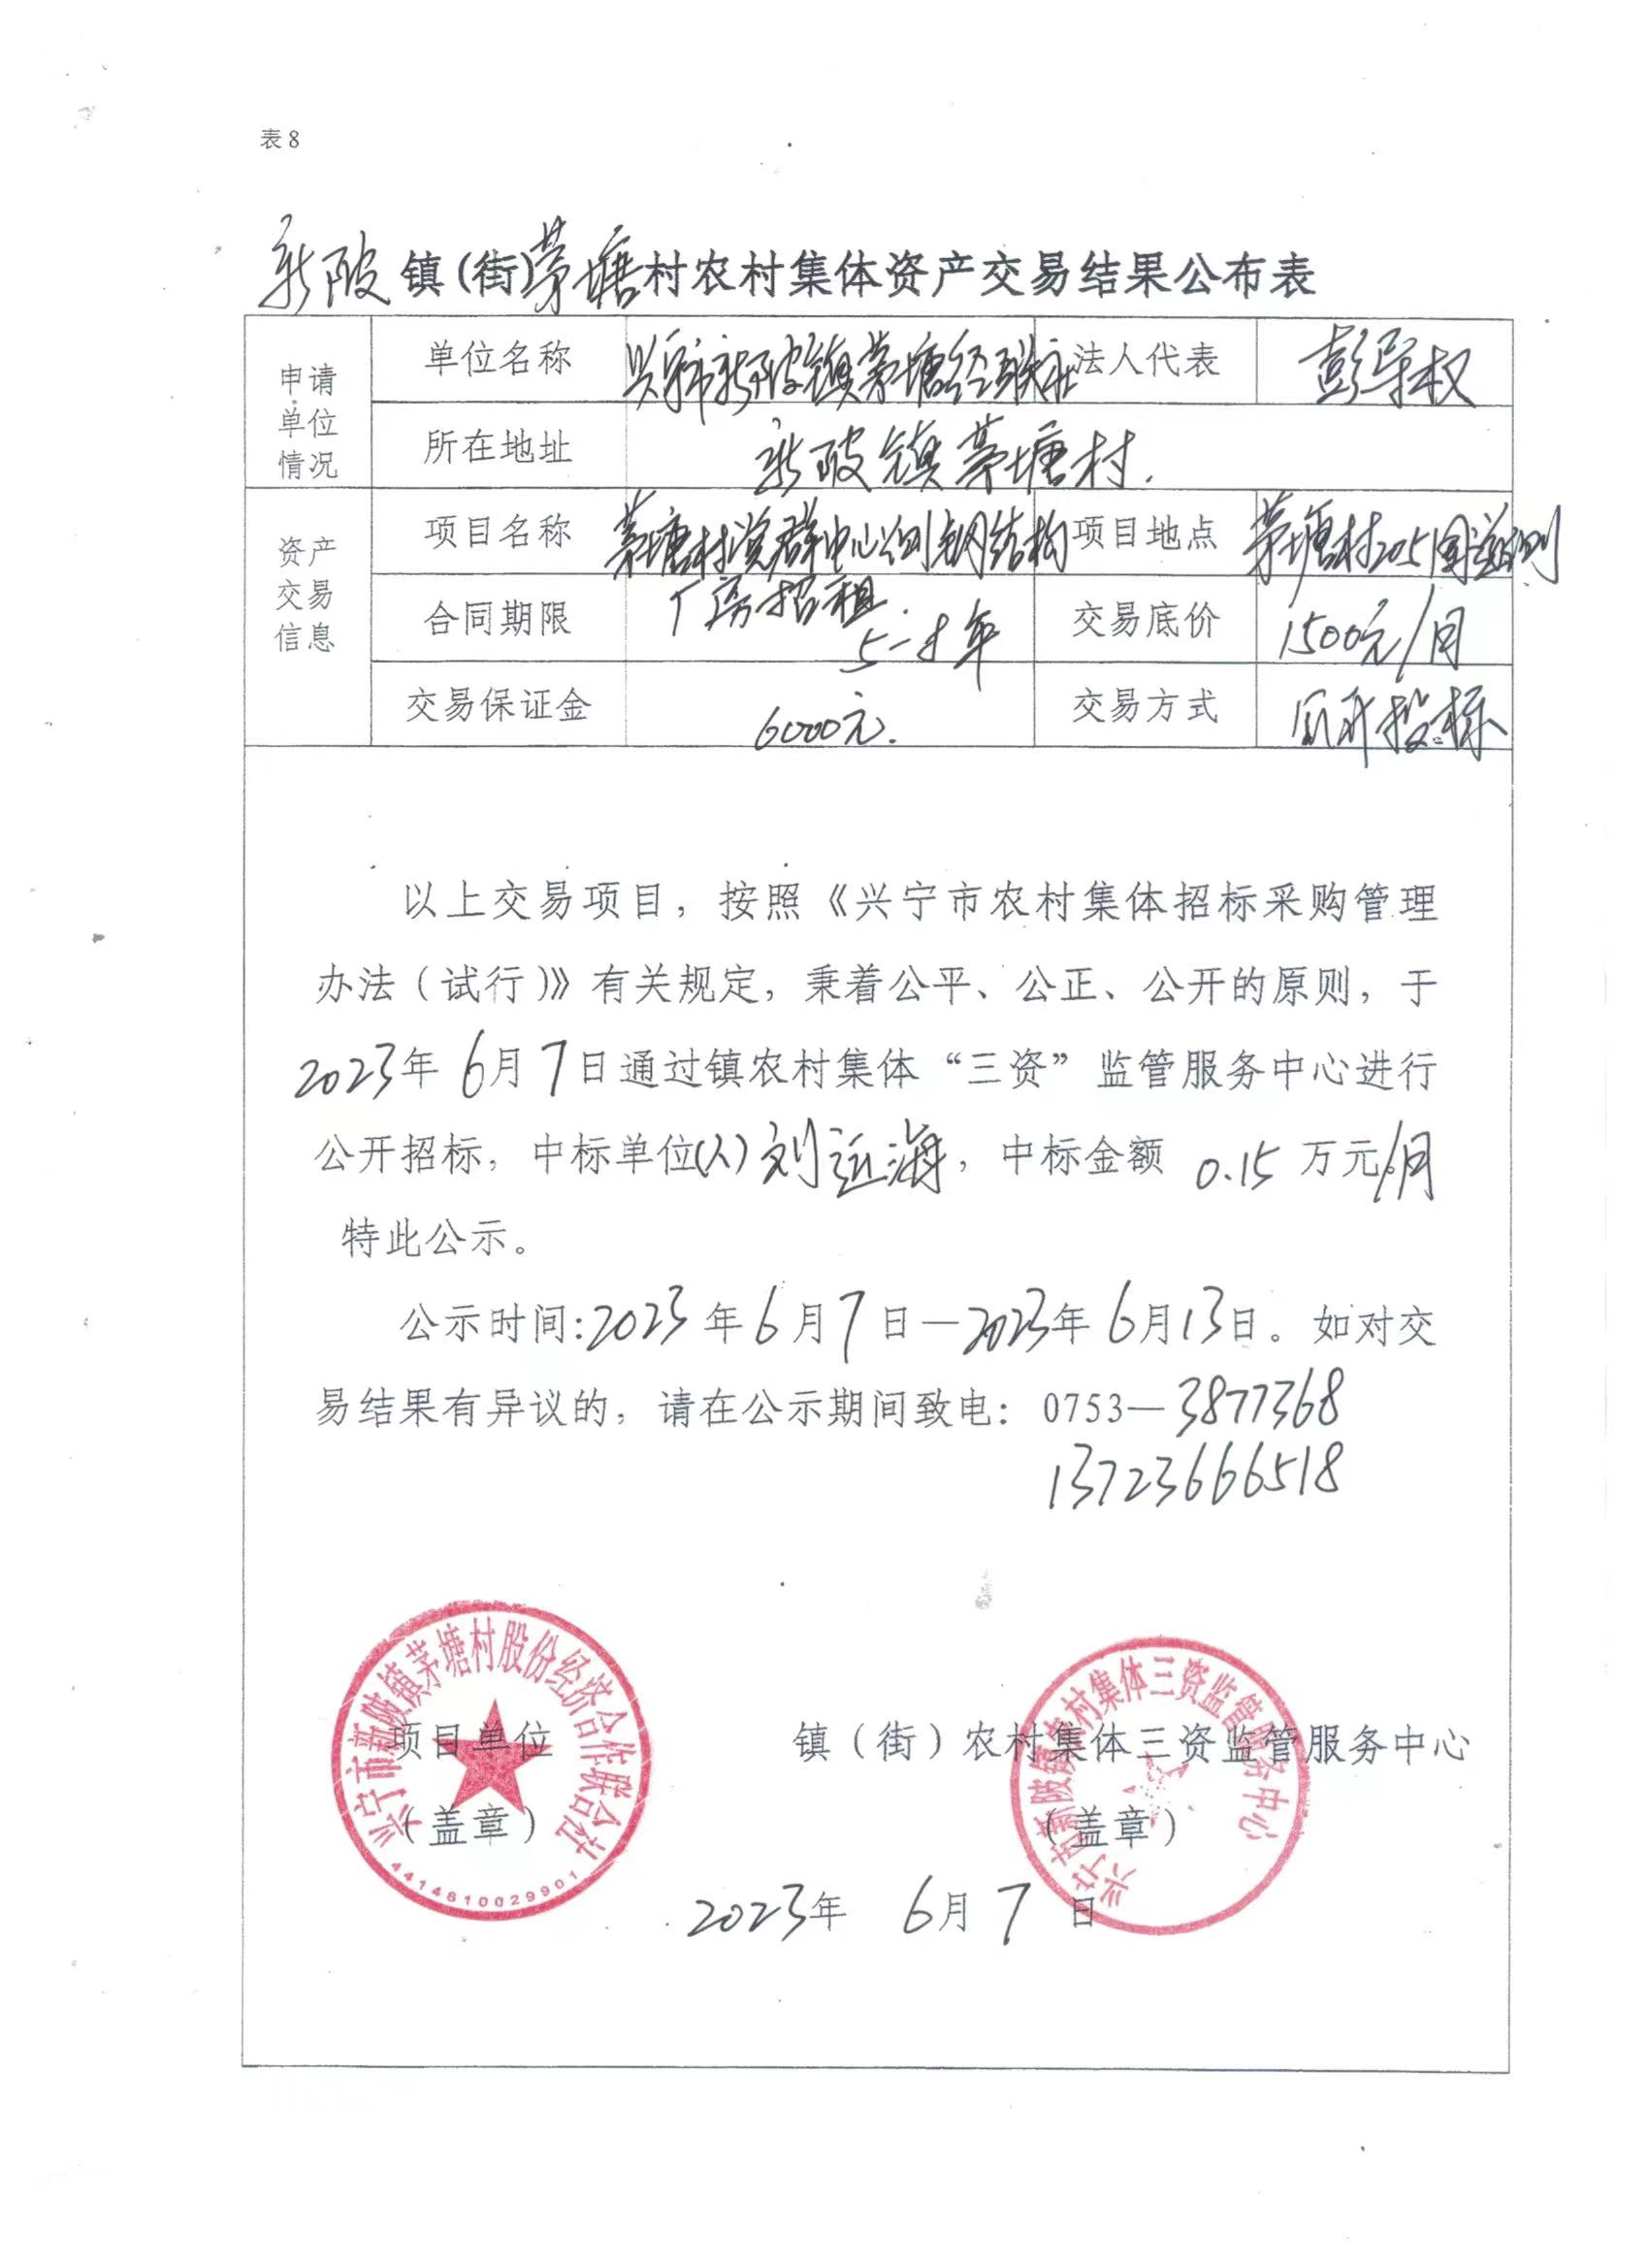 表8
新陂镇(街)茅塘村农村集体资产交易结果公布表
申请单位情况
单位名称 兴宁市新陂镇茅塘经联社 法人代表 彭导权
所在地址 新陂镇茅塘村.
资产交易信息
项目名称 茅塘村党群中心侧钢结构厂房招租. 项目地点 茅塘村205国道侧
合同期限 5-8年 交易底价 1500元/月
交易保证金 6000元. 交易方式 投标
以上交易项目，按照《兴宁市农村集体招标采购管理
办法（试行）》有关规定，秉着公平、公正、公开的原则，于
2023年6月7日通过镇农村集体“三资”监管服务中心进行
公开招标，中标单位(人)刘远海，中标金额 0.15 万元/月
特此公示。
公示时间:2023年6月7日—2023年6月13日。如对交
易结果有异议的，请在公示期间致电：0753—3877368
13723666518
兴宁市新陂镇茅塘村股份经济合作联合社
4414810029901
兴宁市新陂镇农村集体三资监管服务中心
项目单位 镇（街）农村集体三资监管服务中心
（盖章） （盖章）
2023年 6月7日